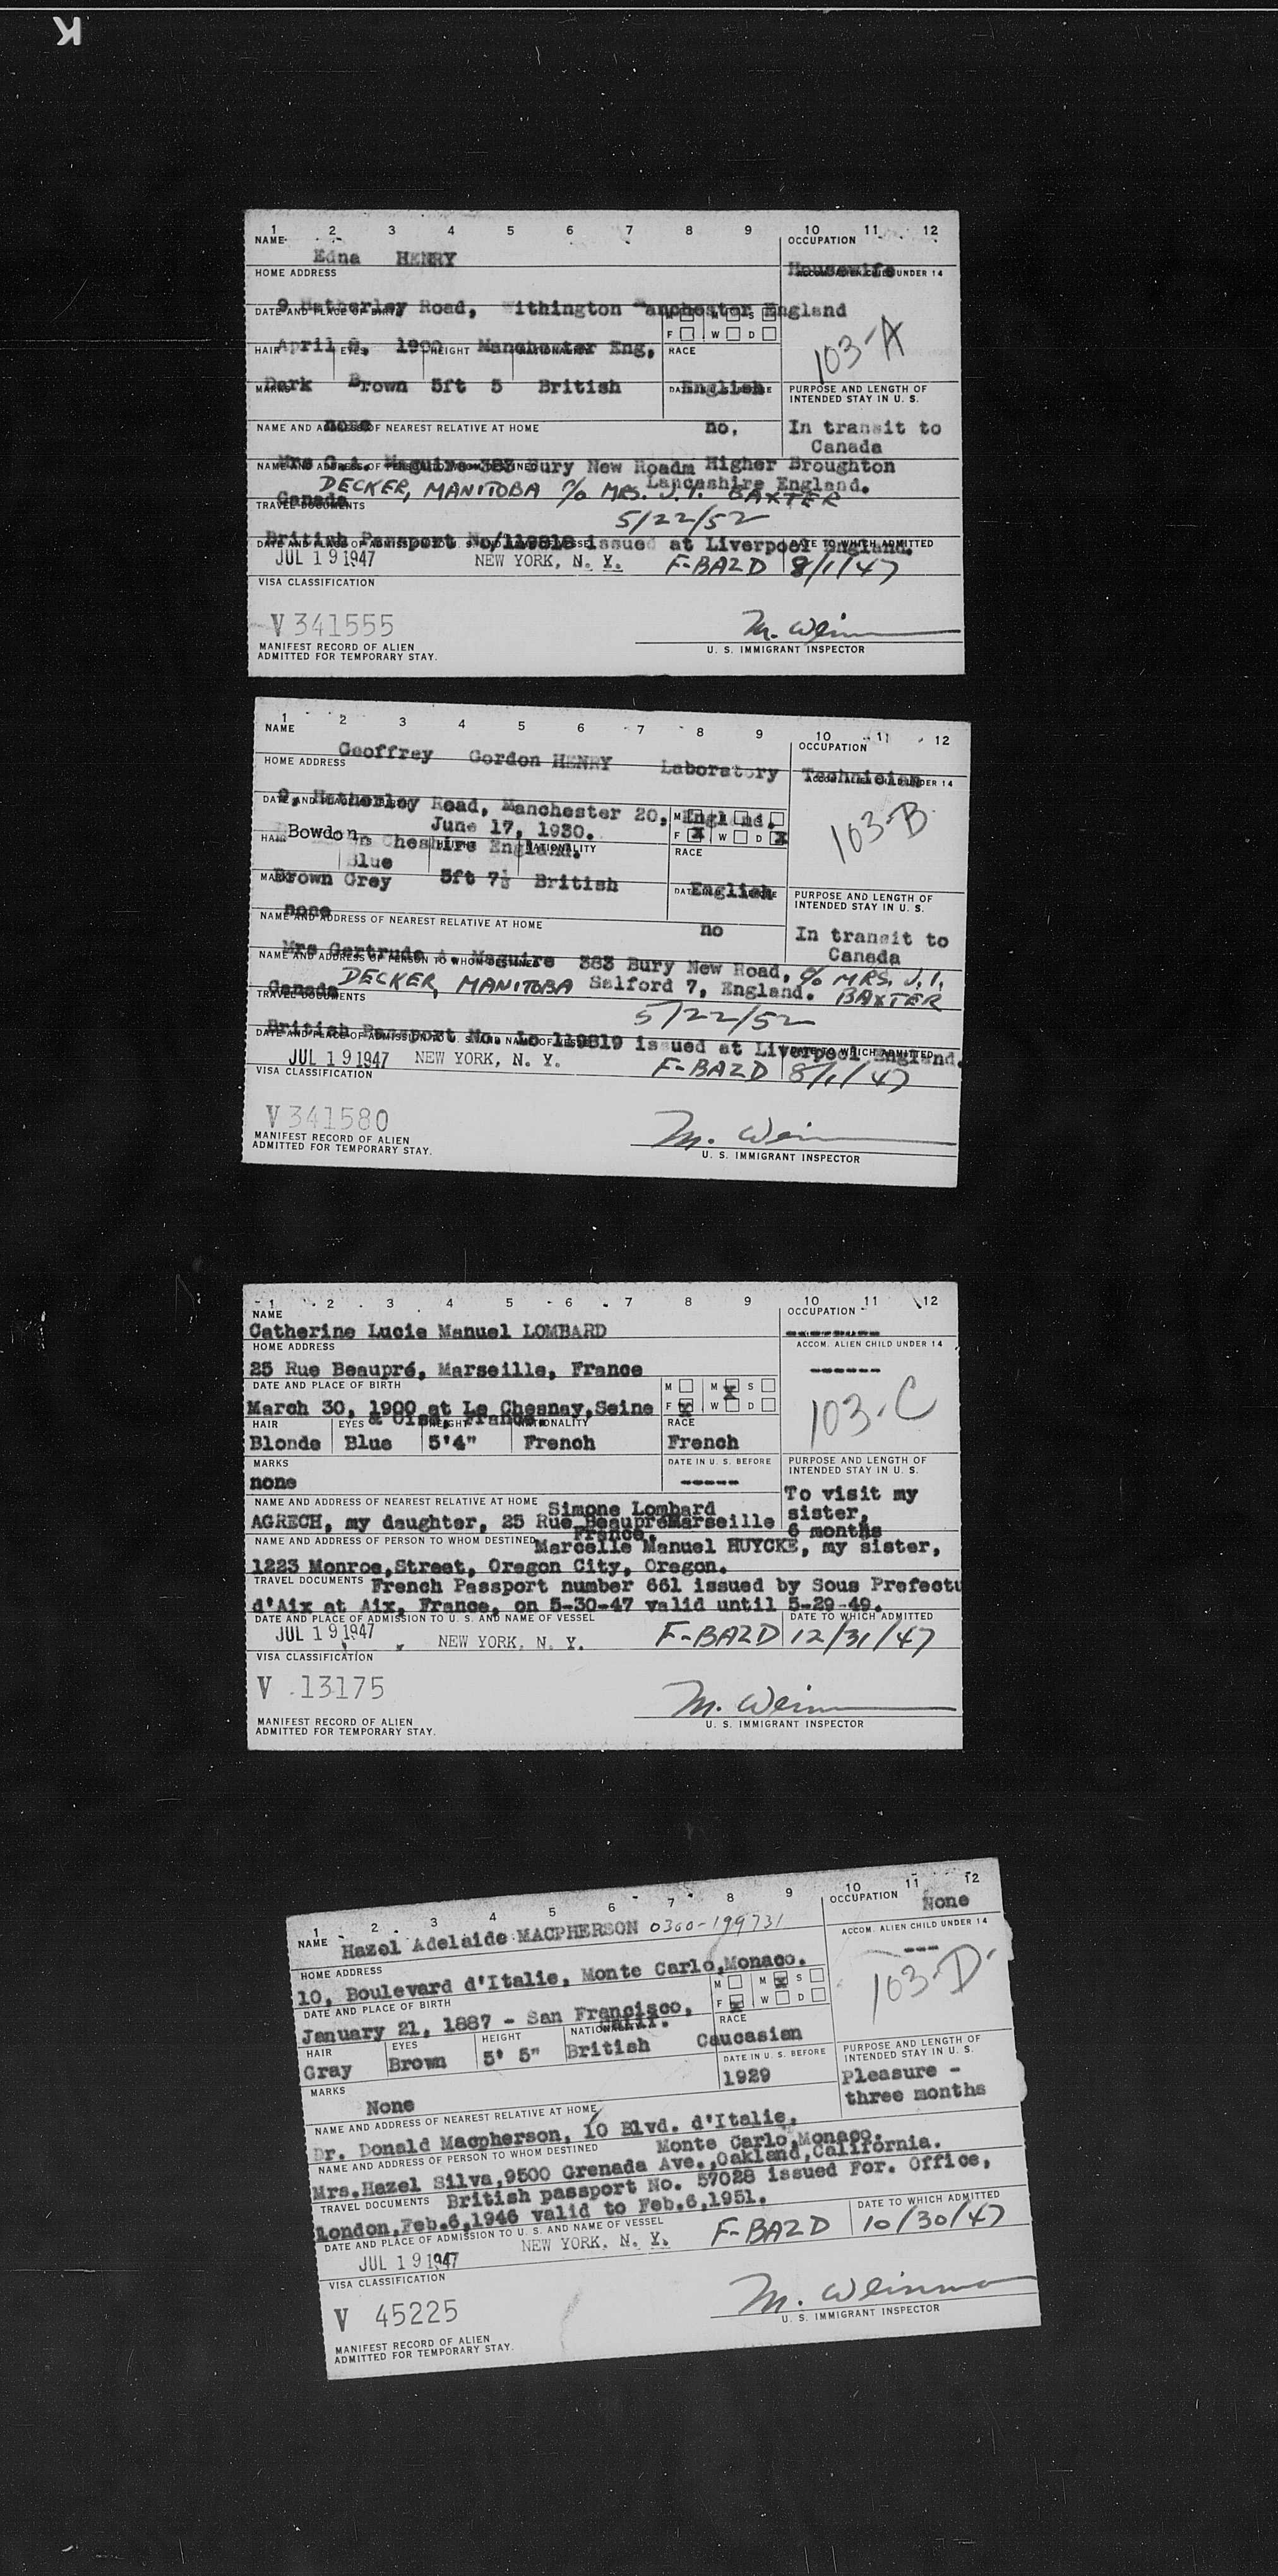 K
1 2 3 4 5 6 7 8 9 10 11 12
NAME OCCUPATION
Edna HENRY Housewife
HOME ADDRESS ACCOM. ALIEN CHILD UNDER 14
9 Hatherley Road, Withington Manchester England
DATE AND PLACE OF BIRTH M M S
F W D
April 8, 1900 Manchester Eng, 103-A
HAIR EYES HEIGHT NATIONALITY RACE
Dark Brown 5ft 5 British English
MARKS DATE IN U. S. BEFORE PURPOSE AND LENGTH OF
INTENDED STAY IN U. S.
none no, In transit to
Canada
NAME AND ADDRESS OF NEAREST RELATIVE AT HOME
Mrs Maguire 383 Bury New Roadm Higher Broughton
Lancashire England.
NAME AND ADDRESS OF PERSON TO WHOM DESTINED
DECKER, MANITOBA c/o MRS. J. I. BAXTER
Canada
TRAVEL DOCUMENTS 5/22/52
British Passport No/119818 issued at Liverpool England.
DATE AND PLACE OF ADMISSION TO U. S. AND NAME OF VESSEL DATE TO WHICH ADMITTED
JUL 19 1947 NEW YORK, N. Y. F-BAZD 8/1/47
VISA CLASSIFICATION
V 341555 M. Wein
MANIFEST RECORD OF ALIEN
ADMITTED FOR TEMPORARY STAY. U. S. IMMIGRANT INSPECTOR
1 2 3 4 5 6 7 8 9 10 11 12
NAME OCCUPATION
Geoffrey Gordon HENRY Laboratory Technician
HOME ADDRESS ACCOM. ALIEN CHILD UNDER 14
9, Hatherley Road, Manchester 20, England.
DATE AND PLACE OF BIRTH M M S
June 17, 1930. F X W D X
Bowdon, Cheshire England. 103-B
HAIR EYES HEIGHT NATIONALITY RACE
Blue
Brown Grey 5ft 7½ British English
MARKS DATE IN U. S. BEFORE PURPOSE AND LENGTH OF
INTENDED STAY IN U. S.
none no In transit to
Canada
NAME AND ADDRESS OF NEAREST RELATIVE AT HOME
Mrs Gertrude Maguire 383 Bury New Road,
Salford 7, England.
NAME AND ADDRESS OF PERSON TO WHOM DESTINED
Canada DECKER, MANITOBA c/o MRS. J. I. BAXTER
TRAVEL DOCUMENTS 5/22/52
British Passport No. Lo 119819 issued at Liverpool England.
DATE AND PLACE OF ADMISSION TO U. S. AND NAME OF VESSEL DATE TO WHICH ADMITTED
JUL 19 1947 NEW YORK, N. Y. F-BAZD 8/1/47
VISA CLASSIFICATION
V 341580 M. Wein
MANIFEST RECORD OF ALIEN
ADMITTED FOR TEMPORARY STAY. U. S. IMMIGRANT INSPECTOR
1 2 3 4 5 6 7 8 9 10 11 12
NAME OCCUPATION
Catherine Lucie Manuel LOMBARD --------
HOME ADDRESS ACCOM. ALIEN CHILD UNDER 14
25 Rue Beaupré, Marseille, France ------
DATE AND PLACE OF BIRTH M M X S
March 30, 1900 at Le Chesnay, Seine F X W D
& Oise, France. 103-C
HAIR EYES HEIGHT NATIONALITY RACE
Blonde Blue 5'4" French French
MARKS DATE IN U. S. BEFORE PURPOSE AND LENGTH OF
INTENDED STAY IN U. S.
none ----- To visit my
sister,
6 months
NAME AND ADDRESS OF NEAREST RELATIVE AT HOME Simone Lombard
AGRECH, my daughter, 25 Rue Beaupré Marseille
France.
NAME AND ADDRESS OF PERSON TO WHOM DESTINED Marcelle Manuel HUYCKE, my sister,
1223 Monroe, Street, Oregon City, Oregon.
TRAVEL DOCUMENTS French Passport number 661 issued by Sous Prefectu
d'Aix at Aix, France, on 5-30-47 valid until 5-29-49.
DATE AND PLACE OF ADMISSION TO U. S. AND NAME OF VESSEL DATE TO WHICH ADMITTED
JUL 19 1947 NEW YORK, N. Y. F-BAZD 12/31/47
VISA CLASSIFICATION
V 13175 M. Wein
MANIFEST RECORD OF ALIEN
ADMITTED FOR TEMPORARY STAY. U. S. IMMIGRANT INSPECTOR
1 2 3 4 5 6 7 8 9 10 11 12
NAME OCCUPATION
Hazel Adelaide MACPHERSON 0300-199731 None
HOME ADDRESS ACCOM. ALIEN CHILD UNDER 14
10, Boulevard d'Italie, Monte Carlo, Monaco. ---
DATE AND PLACE OF BIRTH M M X S
January 21, 1887 - San Francisco, F X W D
Calif. 103-D
HAIR EYES HEIGHT NATIONALITY RACE
Gray Brown 5' 5" British Caucasian
MARKS DATE IN U. S. BEFORE PURPOSE AND LENGTH OF
INTENDED STAY IN U. S.
None 1929 Pleasure -
three months
NAME AND ADDRESS OF NEAREST RELATIVE AT HOME
Dr. Donald Macpherson, 10 Blvd. d'Italie,
Monte Carlo, Monaco.
NAME AND ADDRESS OF PERSON TO WHOM DESTINED
Mrs. Hazel Silva, 9500 Grenada Ave., Oakland, California.
TRAVEL DOCUMENTS British passport No. 57028 issued For. Office,
London, Feb. 6, 1946 valid to Feb. 6, 1951.
DATE AND PLACE OF ADMISSION TO U. S. AND NAME OF VESSEL DATE TO WHICH ADMITTED
JUL 19 1947 NEW YORK, N. Y. F-BAZD 10/30/47
VISA CLASSIFICATION
V 45225 M. Weinman
MANIFEST RECORD OF ALIEN
ADMITTED FOR TEMPORARY STAY. U. S. IMMIGRANT INSPECTOR